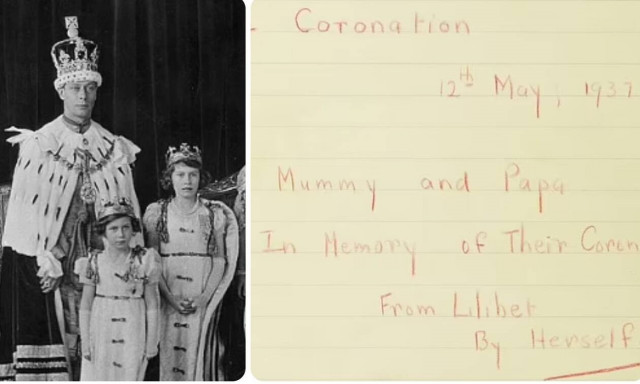 Coronation
12th May, 1937
Mummy and Papa
In Memory of Their Coron
From Lilibet
By Herself